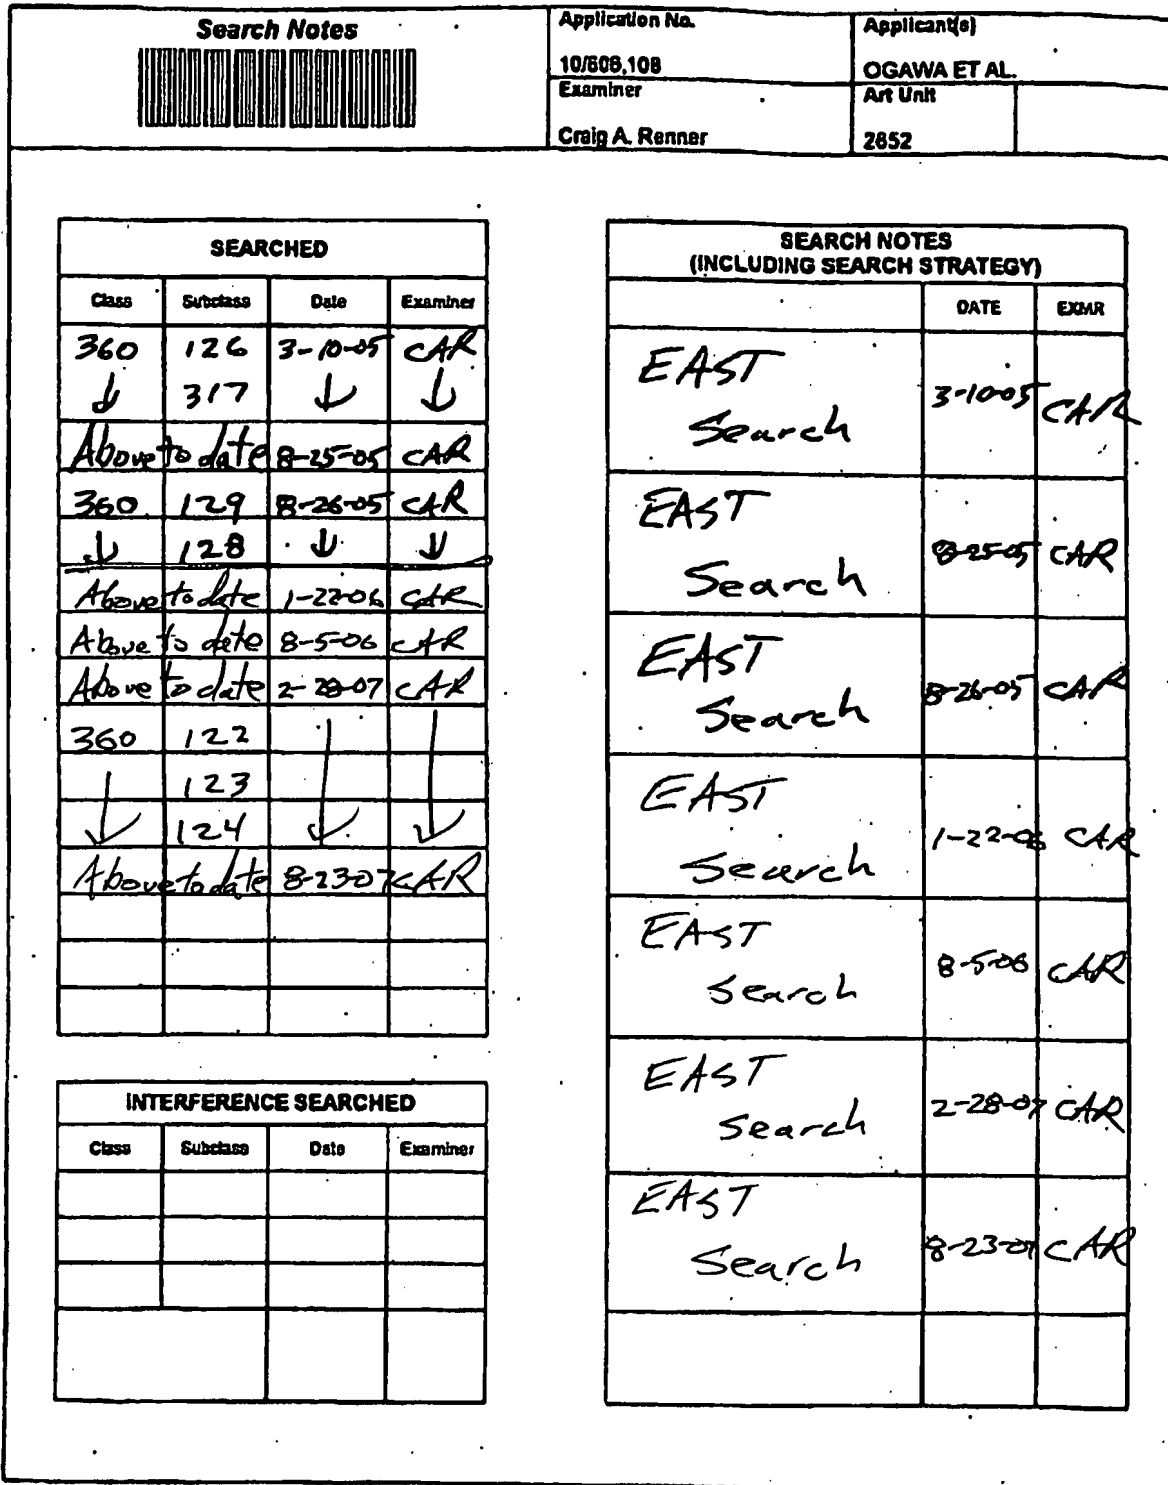 Search Notes
Application No.
Applicant(s)
10/606,108
OGAWA ET AL.
Examiner
Art Unit
Craig A. Renner
2652
SEARCHED
Class Subclass Date Examiner
360 126 3-10-05 CAR
↓ 317 ↓ ↓
Above to date 8-25-05 CAR
360 129 8-26-05 CAR
↓ 128 ↓ ↓
Above to date 1-22-06 CAR
Above to date 8-5-06 CAR
Above to date 2-28-07 CAR
360 122
123
↓ 124 ↓ ↓
Above to date 8-23-07 CAR
INTERFERENCE SEARCHED
Class Subclass Date Examiner
SEARCH NOTES
(INCLUDING SEARCH STRATEGY)
DATE EXMR
EAST
Search 3-10-05 CAR
EAST
Search 8-25-05 CAR
EAST
Search 8-26-05 CAR
EAST
Search 1-22-06 CAR
EAST
Search 8-5-06 CAR
EAST
Search 2-28-07 CAR
EAST
Search 8-23-07 CAR